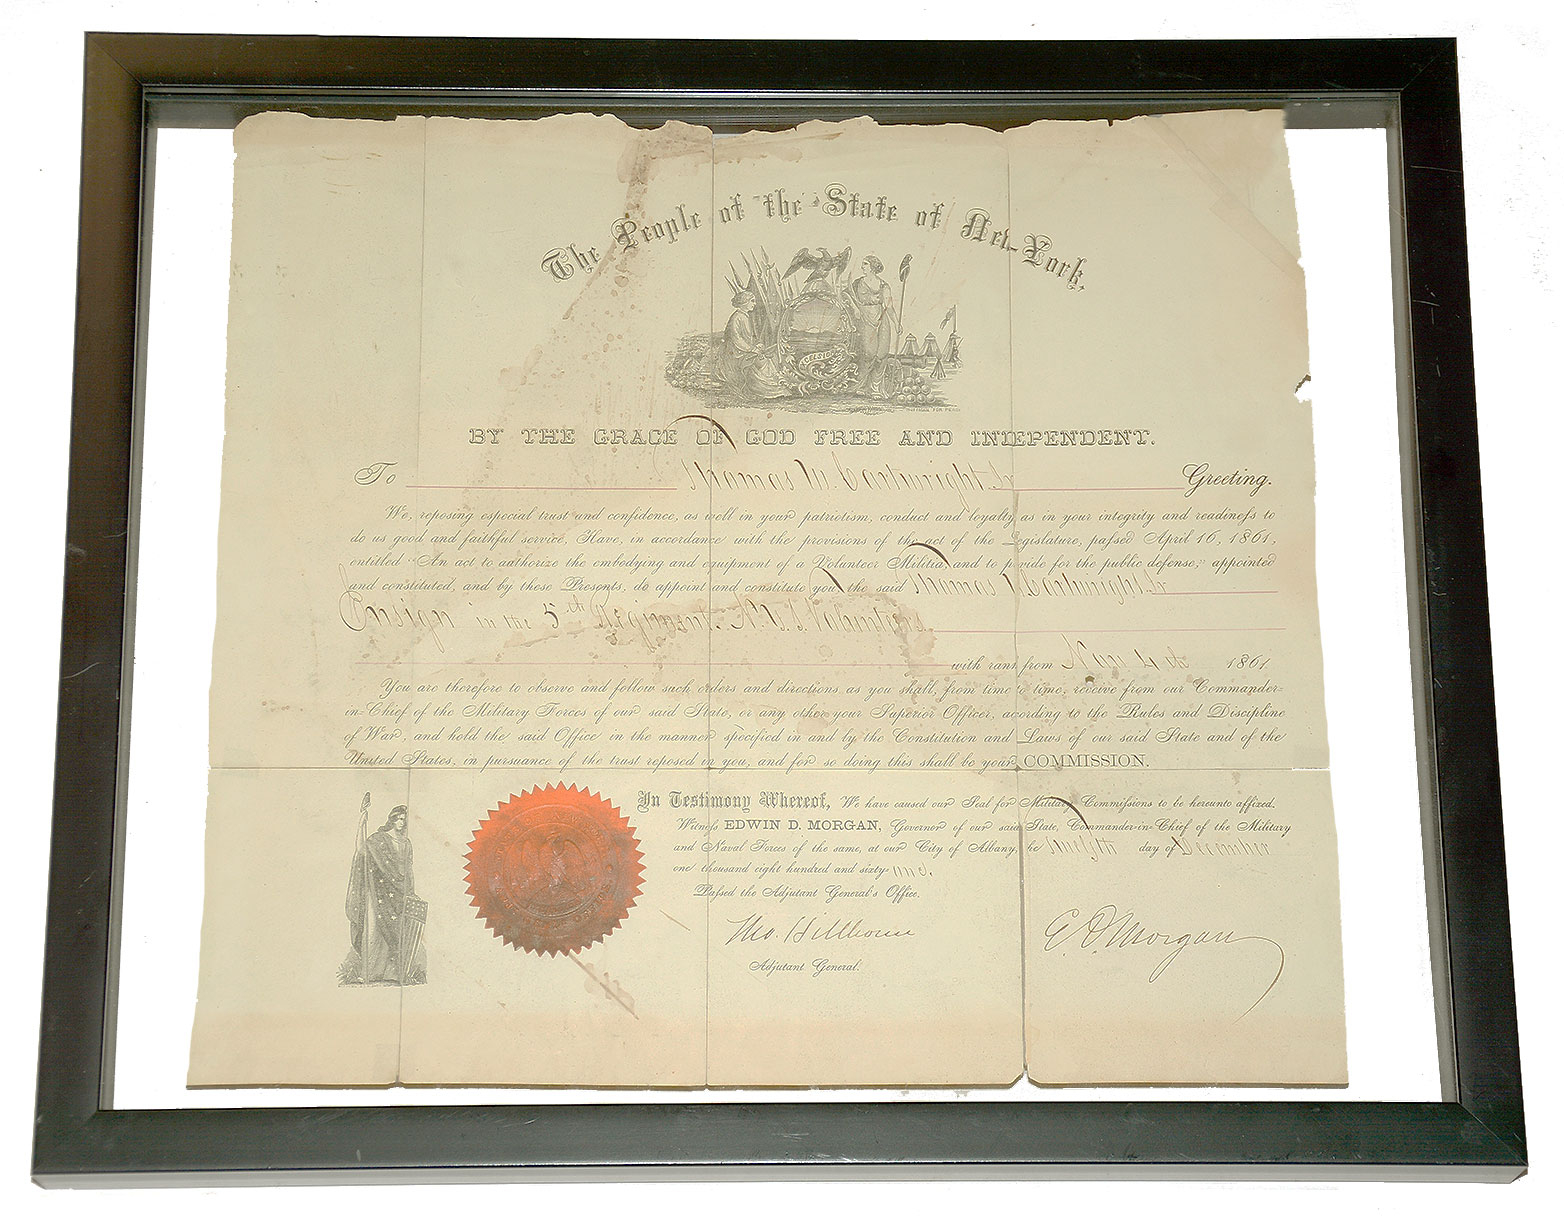 The People of the State of New-York,
EXCELSIOR
BY THE GRACE OF GOD FREE AND INDEPENDENT.
To Thomas W. Cartwright Jr Greeting.
We, reposing especial trust and confidence, as well in your patriotism, conduct and loyalty, as in your integrity and readiness to
do us good and faithful service, Have, in accordance with the provisions of the act of the Legislature, passed April 16, 1861,
entitled "An act to authorize the embodying and equipment of a Volunteer Militia, and to provide for the public defense," appointed
and constituted, and by these Presents, do appoint and constitute you the said Thomas W. Cartwright Jr
Ensign in the 5th Regiment N.Y.S. Volunteers
with rank from 1861
You are therefore to observe and follow such orders and directions as you shall, from time to time, receive from our Commander-
in-Chief of the Military Forces of our said State, or any other your Superior Officer, acording to the Rules and Discipline
of War, and hold the said Office in the manner specified in and by the Constitution and Laws of our said State and of the
United States, in pursuance of the trust reposed in you, and for so doing this shall be your COMMISSION.
In Testimony Whereof, We have caused our Seal for Military Commissions to be hereunto affixed.
Witness EDWIN D. MORGAN, Governor of our said State, Commander-in-Chief of the Military
and Naval Forces of the same, at our City of Albany, the twelfth day of December
one thousand eight hundred and sixty one.
Passed the Adjutant General's Office.
Tho. Hillhouse
E. D. Morgan
Adjutant General.